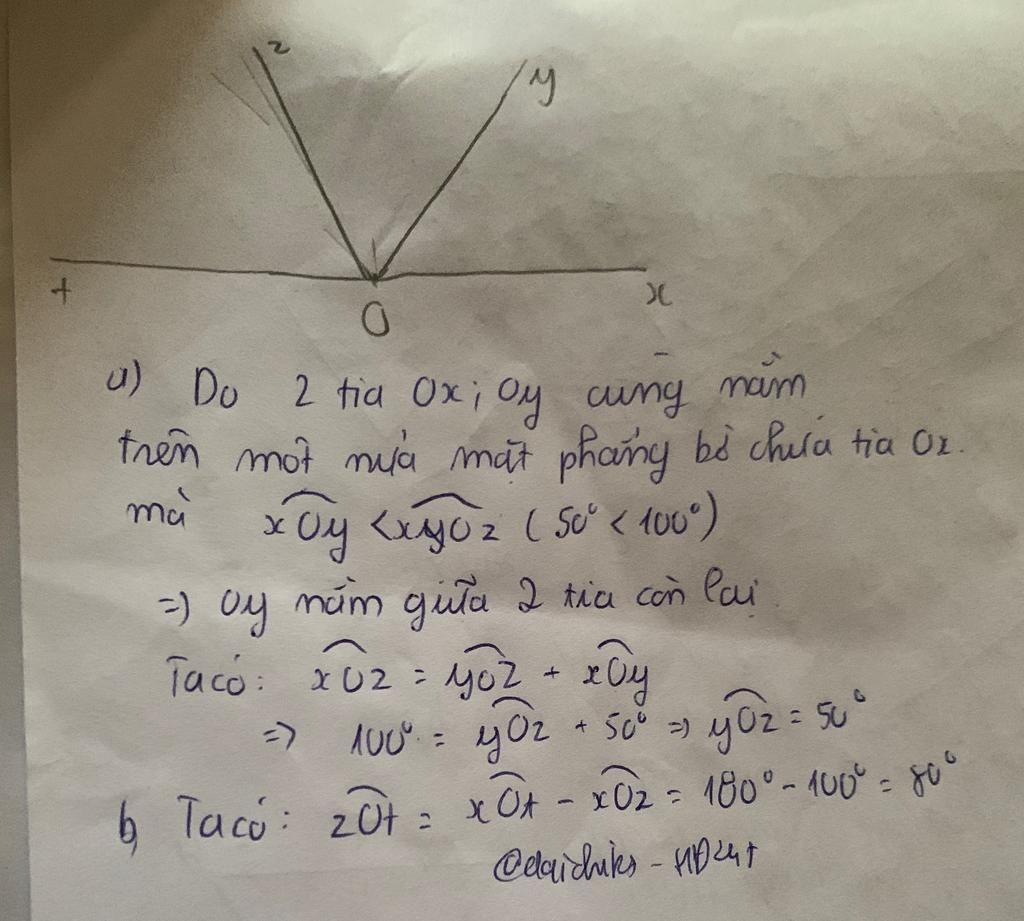 z
y
t
x
O
a) Do 2 tia Ox; Oy cùng nằm
trên một nửa mặt phẳng bờ chứa tia Ox.
mà xOy < xOz (50° < 100°)
=> Oy nằm giữa 2 tia còn lại.
Ta có: xOz = yOz + xOy
=> 100° = yOz + 50° => yOz = 50°
b, Ta có: zOt = xOt - xOz = 180° - 100° = 80°